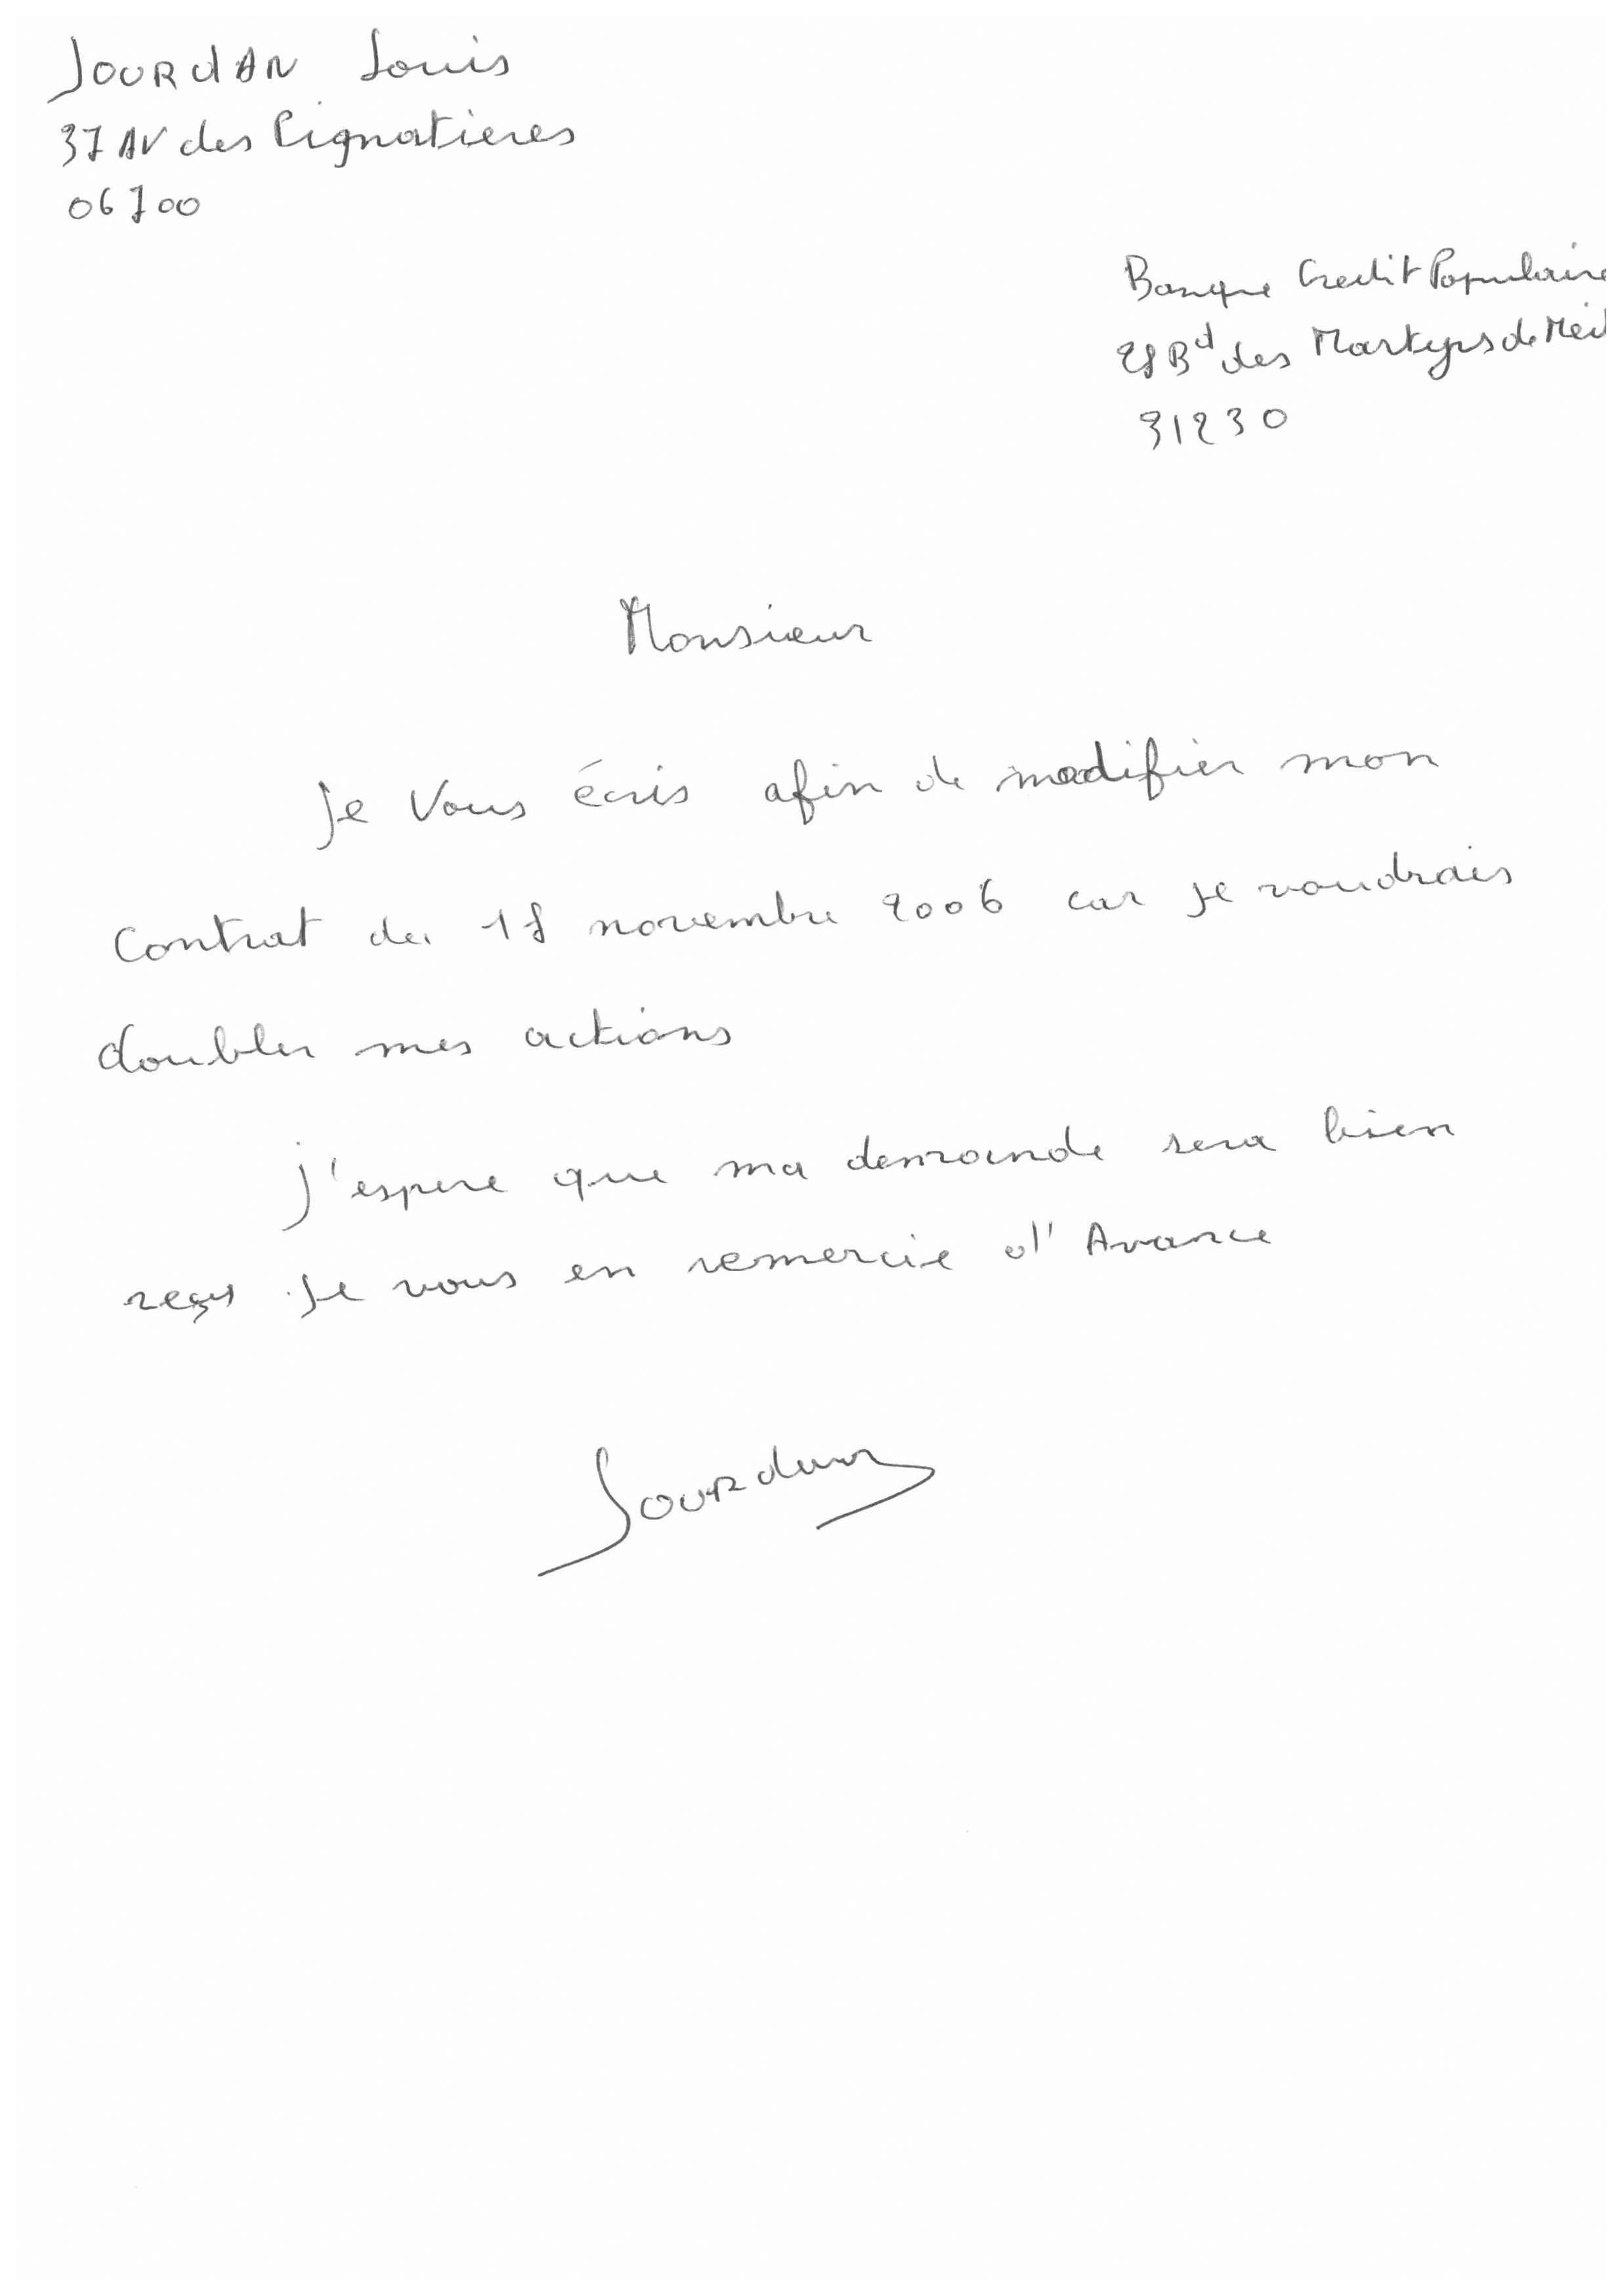 JOURdAN Louis
37 AV des Pignatieres
06700
Banque Credit Populaire
28 Bd des Martyrs de
31230
Monsieur
Je Vous écris afin de modifier mon
Contrat du 18 novembre 2006 car je voudrais
doubler mes actions
j'espere que ma demande sera bien
reçu Je vous en remercie d'Avance
Jourdan